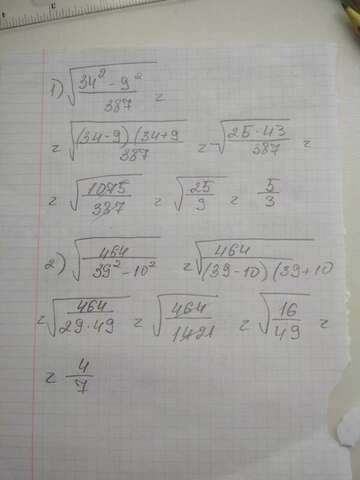 1) √((34² - 9²)/387) =
= √(((34-9)(34+9)/387) = √((25·43)/387) =
= √(1075/387) = √(25/9) = 5/3
2) √(464/(39² - 10²)) = √(464/((39-10)(39+10)
= √(464/(29·49)) = √(464/1421) = √(16/49) =
= 4/7